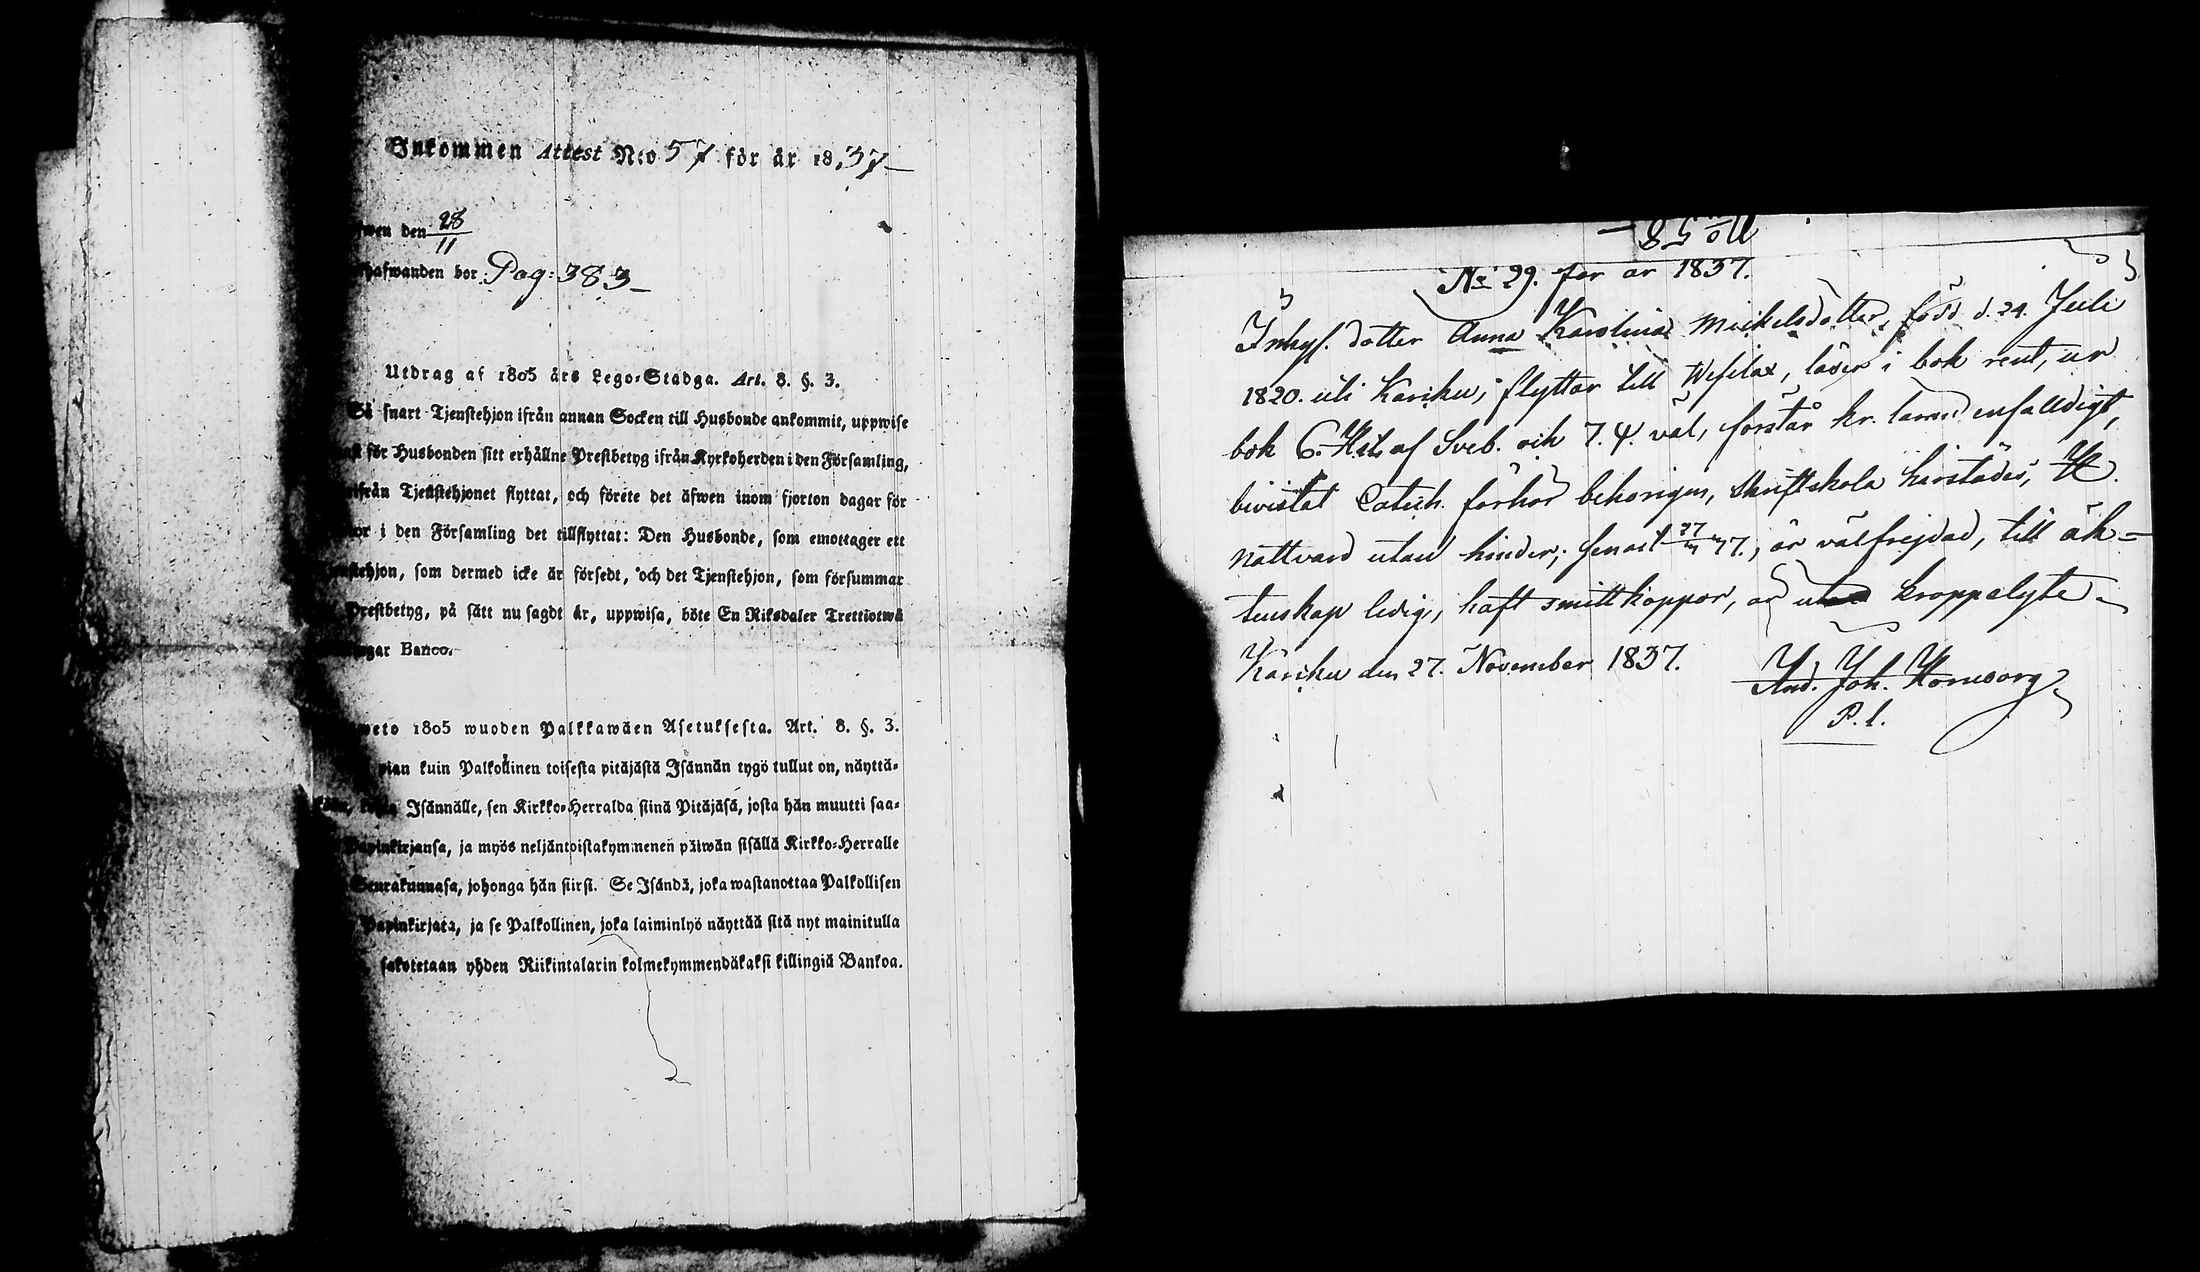 Inkommen Attest N:o 57 för år 1837
den 28/11
bor Pag: 383
Utdrag af 1805 års Lego-Stadga. Art. 8. §. 3.
Så snart Tjenstehjon ifrån annan Socken till Husbonde ankommit, uppwise
för Husbonden sitt erhållne Prestbetyg ifrån Kyrkoherden i den Församling,
Tjenstehjonet flyttat, och förete det äfwen inom fjorton dagar för
i den Församling det tillflyttat: Den Husbonde, som emottager ett
som dermed icke är försedt, och det Tjenstehjon, som försummar
Prestbetyg, på sätt nu sagdt är, uppwisa, böte En Riksdaler Trettiotwå
Banco.
1805 wuoden Palkkawäen Asetuksesta. Art. 8. §. 3.
pian kuin Palkollinen toisesta pitäjästä Isännän tygö tullut on, näyttä-
Isännälle, sen Kirkko-Herralda siinä Pitäjäsä, josta hän muutti saa-
Papinkirjansa, ja myös neljäntoistakymmenen päiwän sisällä Kirkko-Herralle
Seurakunnasa, johonga hän siirsi. Se Isändä, joka wastanottaa Palkollisen
Papinkirjata, ja se Palkollinen, joka laiminlyö näyttää sitä nyt mainitulla
sakotetaan yhden Riikintalarin kolmekymmendäkaksi killingiä Bankoa.
No 58
No 29. för år 1837.
Inhys. dotter Anna Karolina Mickelsdotter, född d. 24. Juli
1820. uti Karcku, flyttar till Wesilax, läser i bok rent, ur
bok 6. H.st. af Sveb. och 7. ψ. väl, förstår kr. läran enfalldigt,
bivistat Catech. förhör behörigen, Skriftskola härstädes, H.
nattvard utan hinder, senast 27/ 37., är välfrejdad, till äk-
tenskap ledig, haft smittkoppor, är utan kroppslyte
Karcku den 27. November 1837.
And. Joh. Hornborg
P. l.